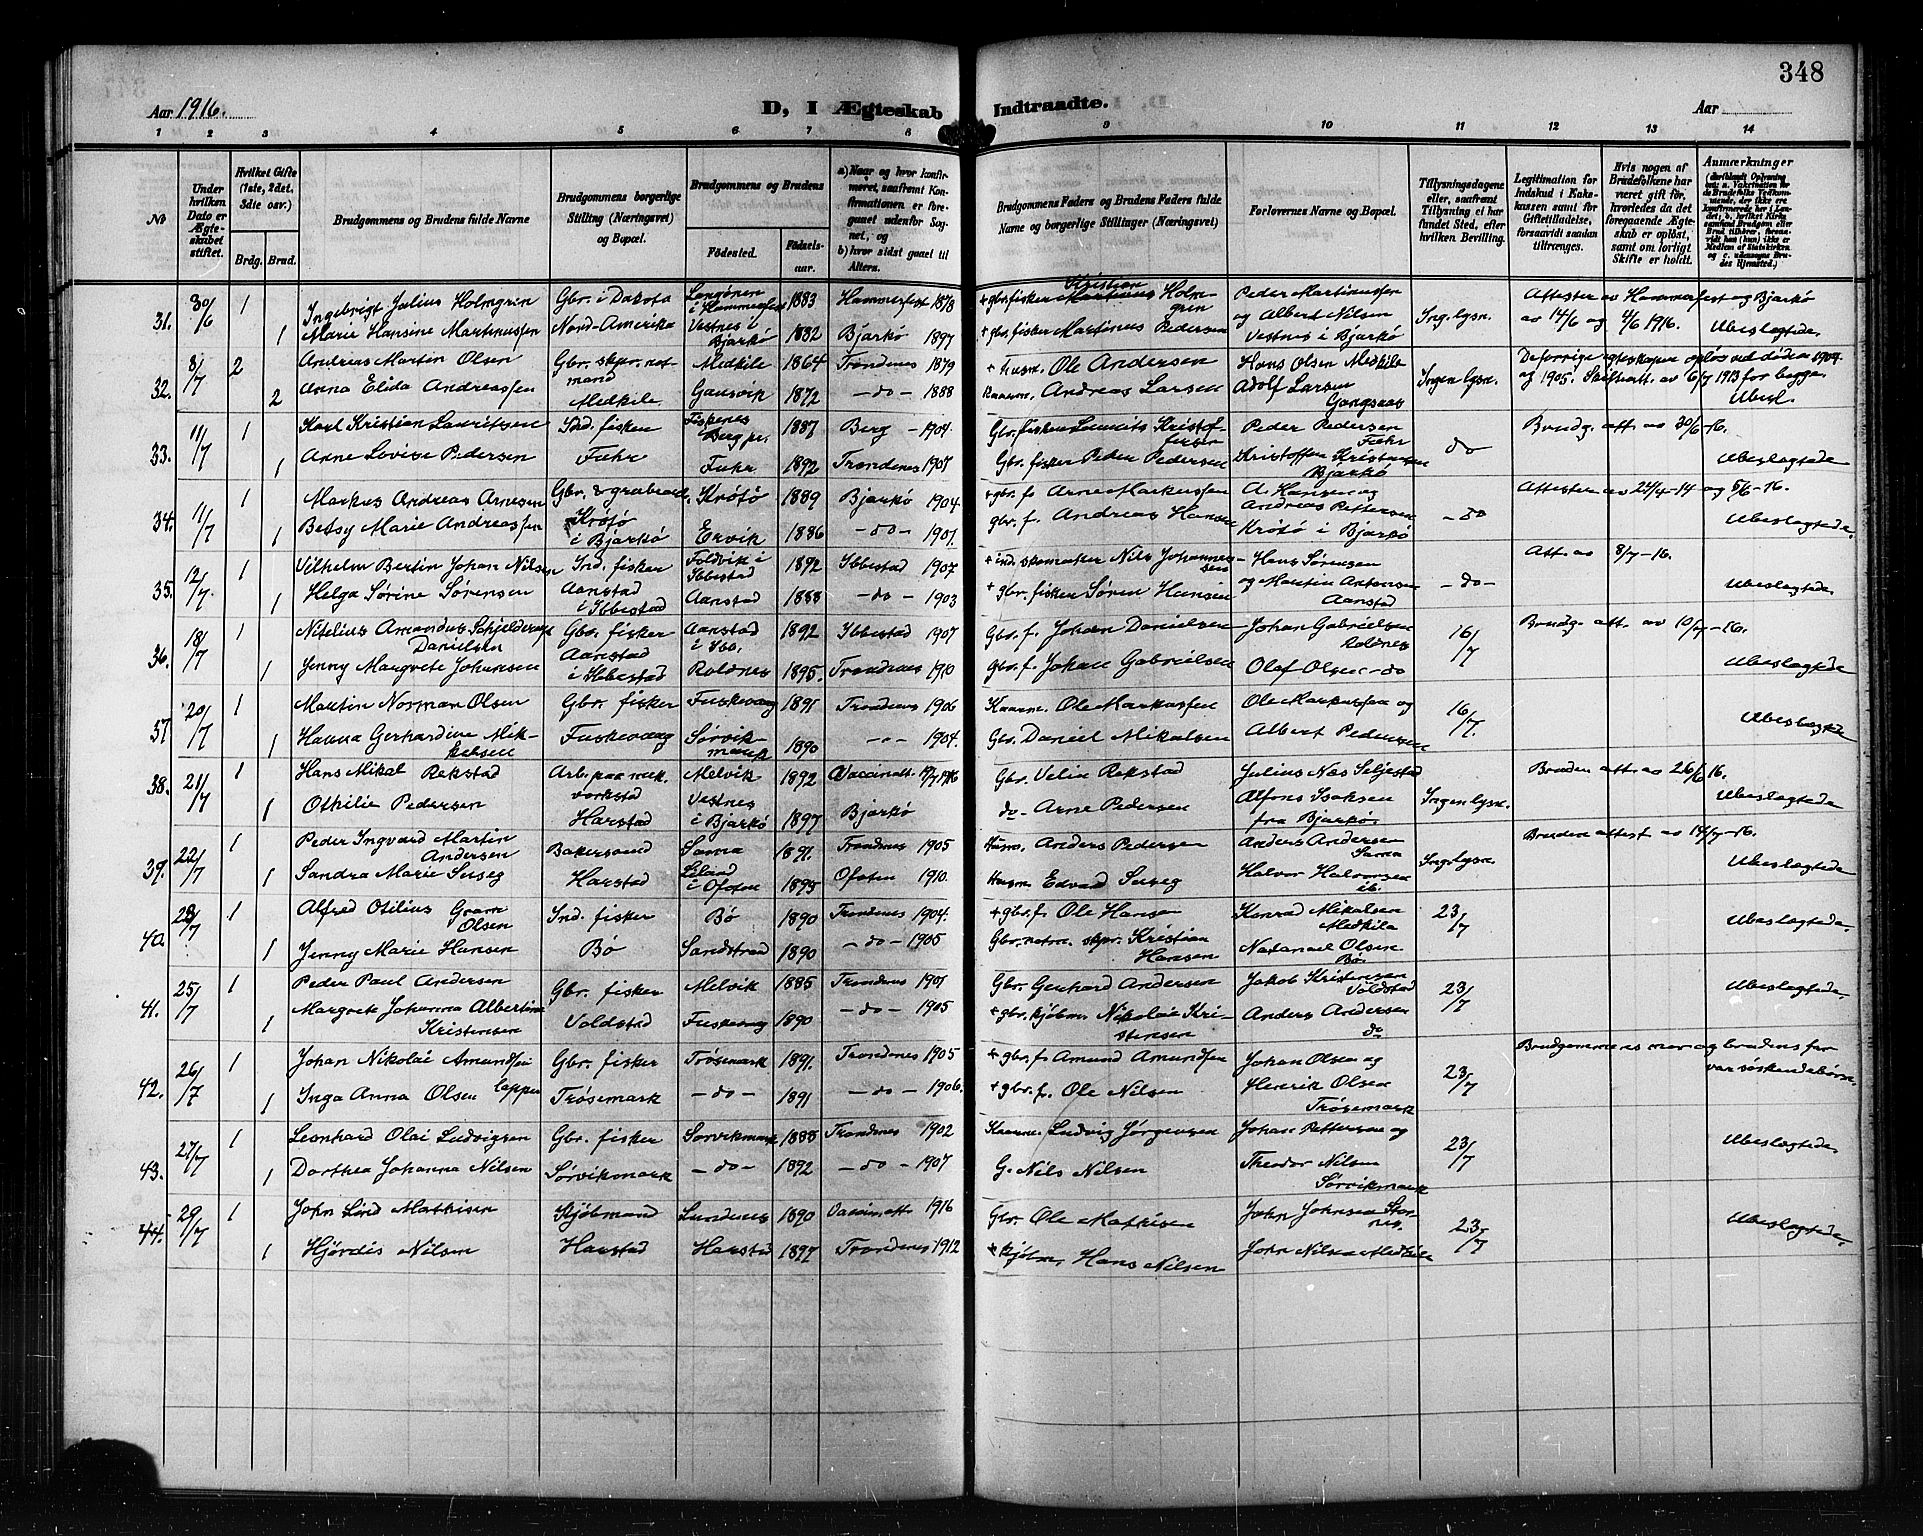 348
Aar 1916.
D, I Ægteskab Indtraadte.
Aar
1 2 3 4 5 6 7 8 9 10 11 12 13 14
No
Under hvilken Dato er Ægteskabet stiftet.
Hvilket Gifte (1ste, 2det, 3die osv.)
Brdg. Brud.
Brudgommens og Brudens fulde Navne
Brudgommens borgerlige Stilling (Næringsvei) og Bopæl.
Brudgommens og Brudens
Fødested. Fødselsaar.
a) Naar og hvor konfirmeret, saafremt Konfirmationen er foregaaet udenfor Sognet, og
b) hvor sidst gaaet til Alters.
Brudgommens Faders og Brudens Faders fulde Navne og borgerlige Stillinger (Næringsvei)
Forlovernes Navne og Bopæl.
Tillysningsdagene eller, saafremt Tillysning ei har fundet Sted, efter hvilken Bevilling.
Legitimation for Indskud i Enkekassen samt for Giftetilladelse, forsaavidt saadan tiltrænges.
Hvis nogen af Brudefolkene har været gift før, hvorledes da det foregaaende Ægteskab er opløst, samt om lovligt Skifte er holdt.
Anmærkninger
31. 30/6 1 Ingebrigt Julius Holmgren Gbr. i Dakota 1883 Hammerfest 1878 + gbr. fisker Kristian Holmgren Peder Martinussen Ing. lysn. Attester av Hammerfest og Bjarkø
1 Marie Hansine Martinussen Nord-Amerika Vestnes i Bjarkø 1882 Bjarkø 1897 + gbr. fisker Martinus Pedersen og Albert Nilsen Vestnes i Bjarkø av 14/6 og 4/6 1916. Ubeslagtede
32. 8/7 2 Andreas Martin Olsen Gbr. skpr. notmand Medkile 1864 Trondenes 1879 + husm. Ole Andersen Hans Olsen Medkile Ingen lysn. De forrige egteskaper opløs ved døden 1904
2 Anna Elida Andreassen Medkile Gausvik 1872 - do - 1888 Andreas Larsen Adolf Larsen Gangsaas og 1905. Skifteatt. av 6/7 1913 for begge. Ubesl.
33. 11/7 1 Karl Kristian Lauritsen Ind. fisker Berg pr. 1887 Berg - 1904 Gbr. fisker Laurits Kristoffersen Peder Pedersen do Brudg. att. av 30/6-16.
1 Arne Lovise Pedersen 1892 Trondenes 1907 Gbr. fisker Peder Pedersen Kristoffer Kristensen Bjarkø Ubeslagtede
34. 11/7 1 Markus Andreas Arnesen Krøtø 1889 Bjarkø 1904 + gbr. f. Arne Markussen A. Hansen og - do Attester av 24/4-14 og 5/6-16.
1 Betsy Marie Andreassen Krøtø i Bjarkø Ervik 1886 - do - 1901. gbr. f. Andreas Hansen Andreas Pettersen Krøtø i Bjarkø Ubeslagtede.
35. 12/7 1 Vilhelm Bertin Johan Nilsen Ind. fisker Foldvik i Ibbestad 1892 Ibbestad 1907 + ind. skomaker Nils Johannessen Hans Sørensen - do - Att. av 8/7-16.
1 Helga Sørine Sørensen Aanstad i Ibbestad Aanstad 1888 - do - 1903 + gbr. fisker Søren Hansen og Martin Antonsen Aanstad Ubeslagtede.
36. 18/7 1 Nitelius Amandus Schjelderup Danielsen Gbr. fisker Aanstad i Ibb. 1892 Ibbestad 1907 Gbr. f. Johan Danielsen Johan Gabrielsen Roldnes 16/7 Brudg. att. av 10/7-16.
1 Jenny Margrete Johansen Aanstad i Ibbestad Roldnes 1895. Trondenes 1910 Gbr. f. Johan Gabrielsen Olaf Olsen - do Ubeslagtede
37 20/7 1 Martin Norman Olsen Gbr. fisker Fuskevaag 1891 Trondenes 1906 Kaarm. Ole Markussen Ole Markussen og 16/7.
1 Hanna Gerhardine Mikkelsen Fuskevaag Sørvikmark 1890 - " - 1904. Gbr. Daniel Mikalsen Albert Pedersen Ubeslagtede
38. 21/7 1 Hans Mikal Rekstad Arb. paa mek. verkstad Melvik 1892 Vaccinatt. 1916 Gbr. Rekstad Julius Næs Seljestad Ingen lysn. Bruden att. av 26/6 16.
1 Othilie Pedersen Harstad Vestnes i Bjarkø 1897 Bjarkø do - Arne Pedersen Alfons Isaksen fra Bjarkø. Ubeslagtede
39. 22/7 1 Peder Ingvard Martin Andersen Bakersvend Sama 1891. Trondenes 1905 Husm. Anders Pedersen Anders Andersen Sama Ing. lysn. Brudens attest av 14/7-16.
1 Sandra Marie Suseg Harstad Liland i Ofoten 1895 Ofoten 1910. Husm. Edvard Suseg Halvor Halvorsen ib. Ubeslagtede
40. 23/7 1 Alfred Otilius Gram Olsen Ind. fisker Bø 1890 Trondenes 1904. + gbr. f. Ole Hansen Konrad Mikalsen Medkile 23/7
1 Jenny Marie Hansen Bø Sandstrad 1890 - do - 1905 Gbr. notm. skpr. Kristian Hansen Natanael Olsen Bø. Ubeslagtede.
41. 25/7 1 Peder Paul Andersen Gbr. fisker Melvik 1885 Trondenes 1901 Gbr. Gerhard Andersen Jakob Kristensen Voldstad 23/7
1 Margrete Johanna Albertine Kristensen Voldstad Fuskevag 1890 - do - 1905 + gbr. kjøbm. Nikolai Kristensen Anders Andersen do Ubeslagtede.
42. 26/7 1 Johan Nikolai Amundsen Gbr. fisker Trøsemark 1891. Trondenes 1905 + gbr. f. Amund Amundsen Johan Olsen og 23/7 Brudgommens mor og brudens far
1 Inga Anna Olsen lapper Trøsemark - do - 1891 - do - 1906. + gbr. f. Ole Nilsen Henrik Olsen Trøsemark var søskendebørn.
43. 27/7 1 Leonhard Olai Ludvigsen Gbr. fisker Sørvikmark 1888 Trondenes 1902 Kaarm. Ludvig Jørgensen Johan Pettersen og 23/7
1 Dorthea Johanna Nilsen Sørvikmark - do - 1892 - do - 1907 G. Nils Nilsen Theodor Nilsen Sørvikmark Ubeslagtede.
44. 29/7 1 John Lind Mathisen Kjøbmand Lundenes 1890 Vaccin. att. 1916 Gbr. Ole Mathisen John Johnsen 23/7
1 Hjørdis Nilsen Harstad Harstad 1897 Trondenes 1912 + kjøbm. Hans Nilsen John Nilsen Medkile Ubeslagtede.